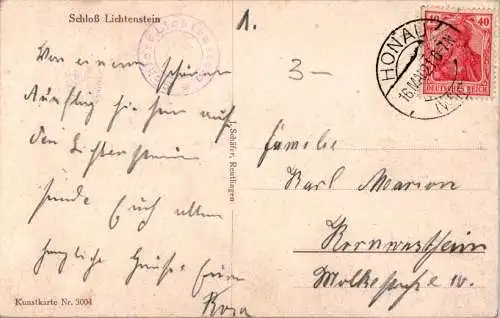 Schloß Lichtenstein
1.
3-
HONAU
16.MAI.21.6-7N
40
DEUTSCHES REICH
Von einem schönen
Ausflug hierher auf
den Lichtenstein
sende Euch allen
herzliche Grüße Eure
Rosa
J. Schäfer, Reutlingen
Familie
Karl Marion
Kornwestheim
Molkestraße 10.
Kunstkarte Nr. 3004